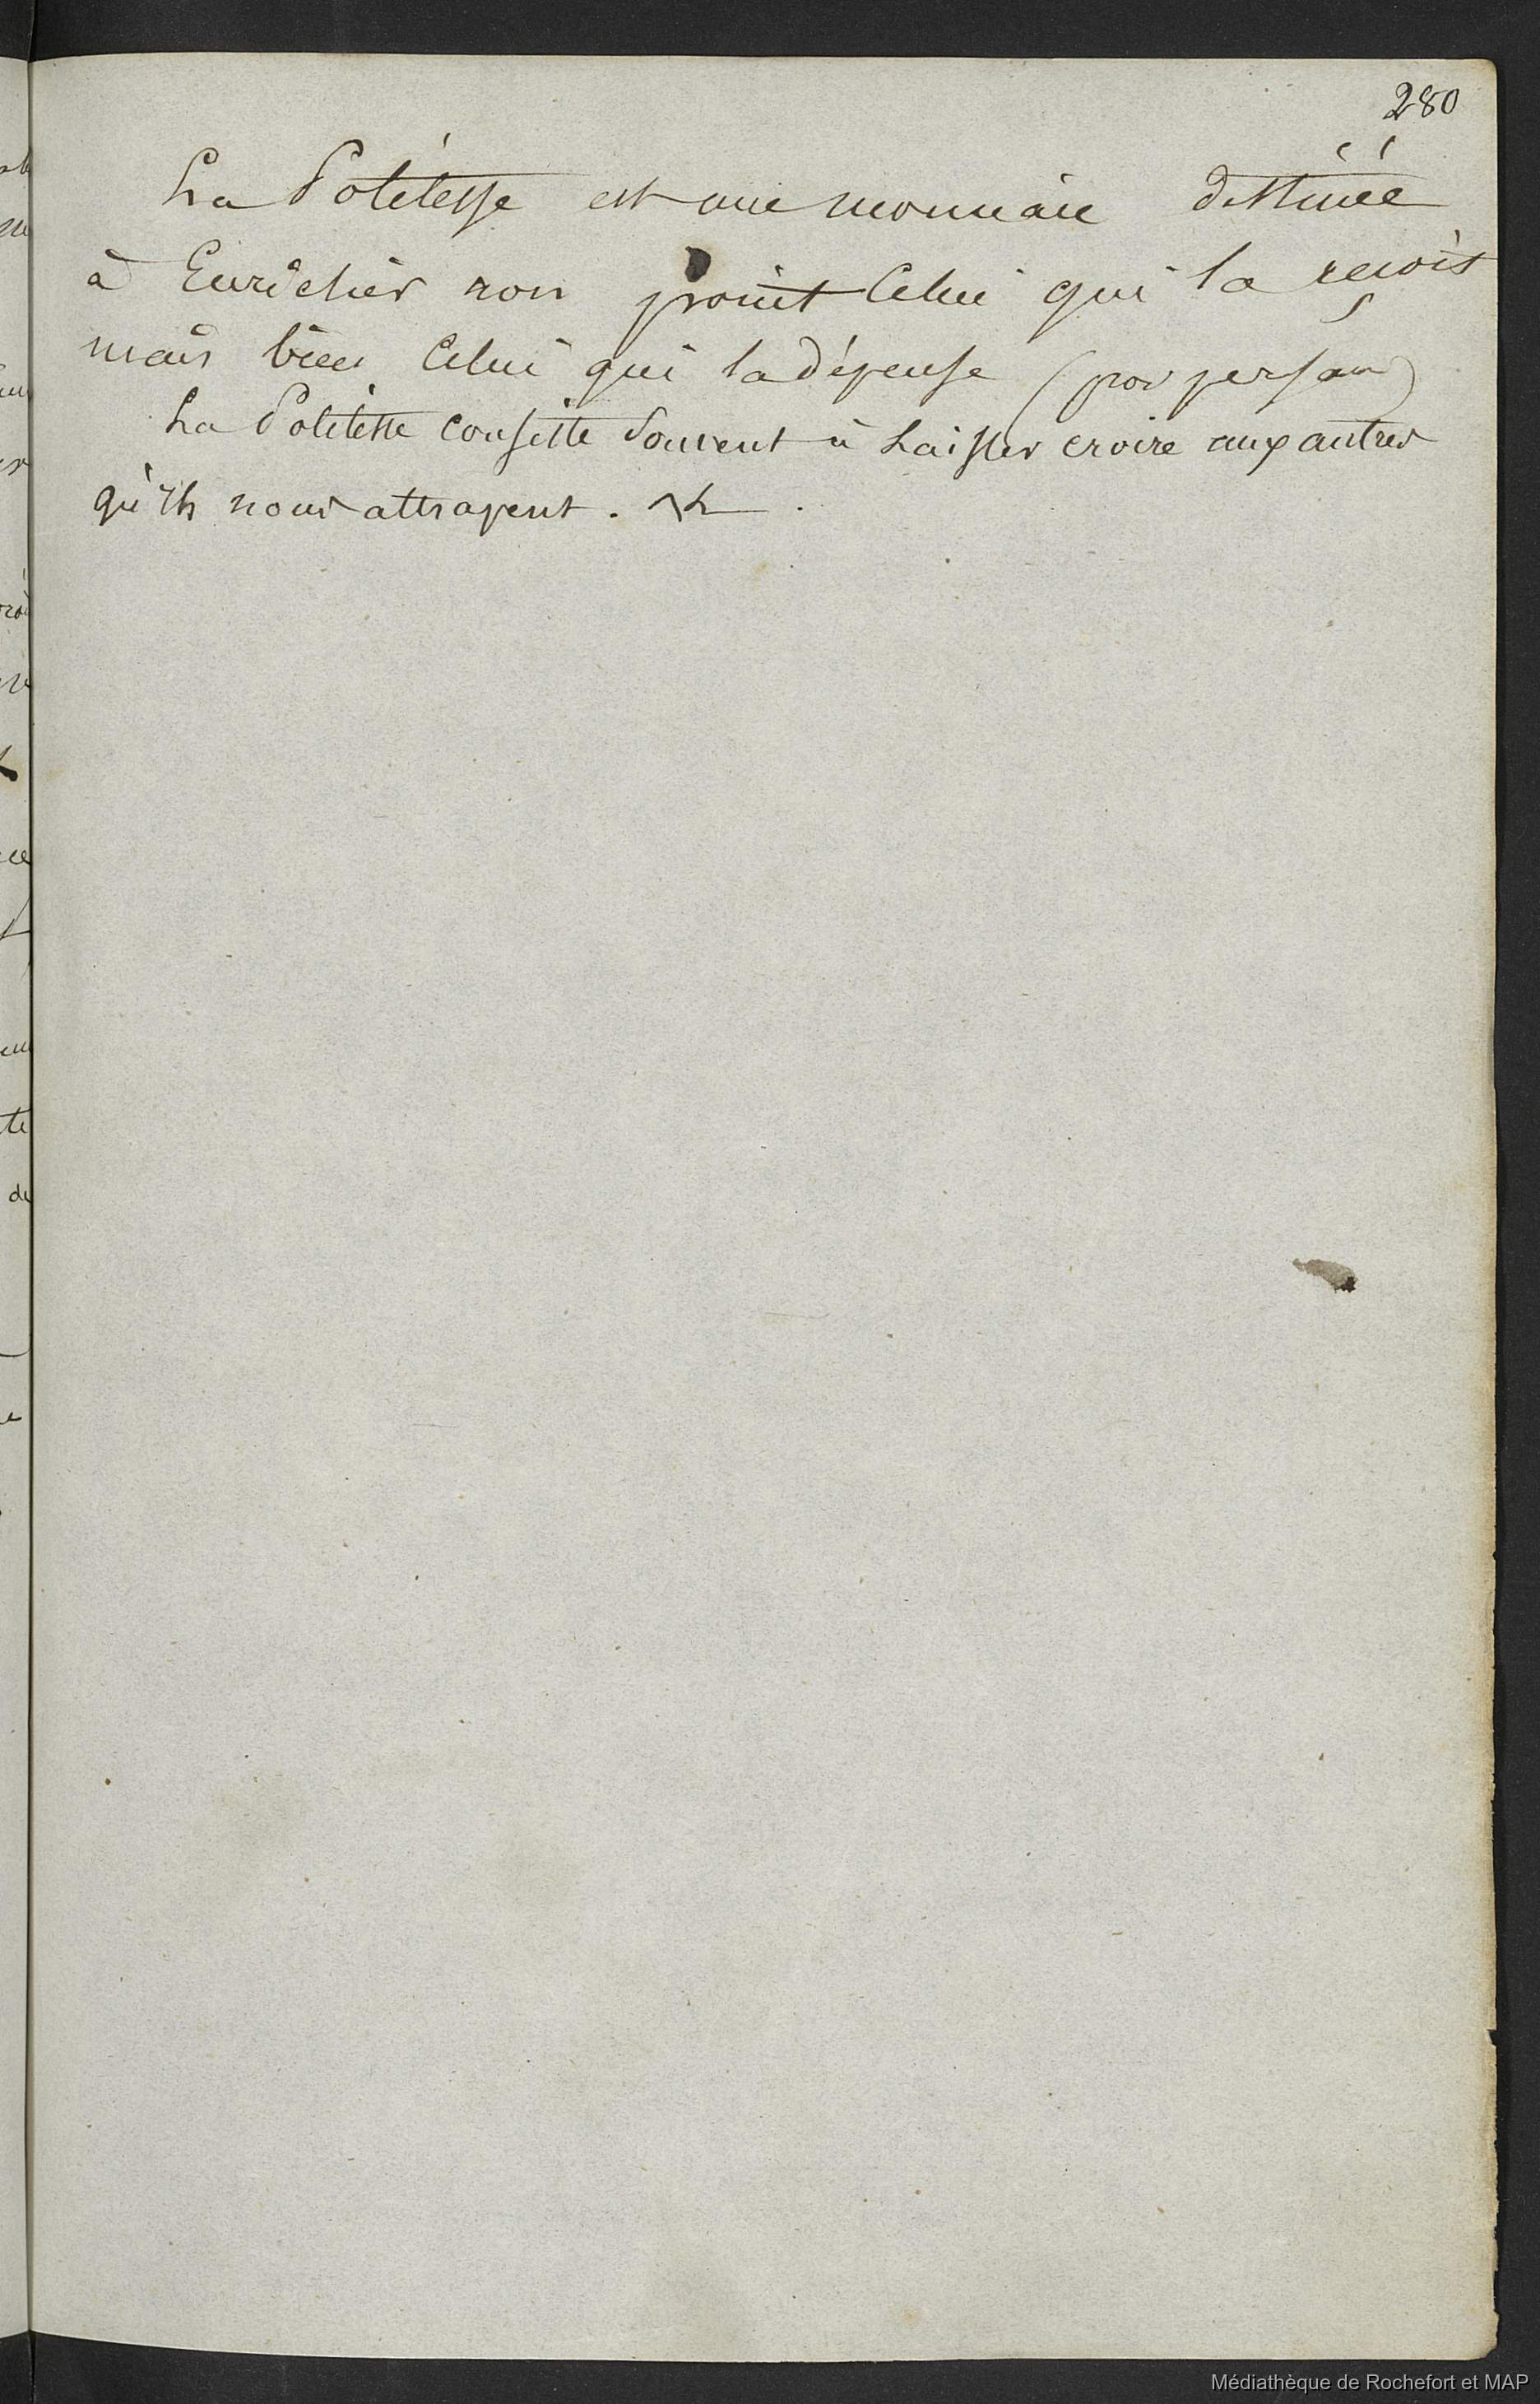 280
La Politesse est une monnaie destinée
à Enrichir non point Celui qui la reçoit
mais bien Celui qui la dépense (prov persan)
La Politesse consiste Souvent à Laisser croire aux autres
qu'ils nous attrapent.
Médiathèque de Rochefort et MAP